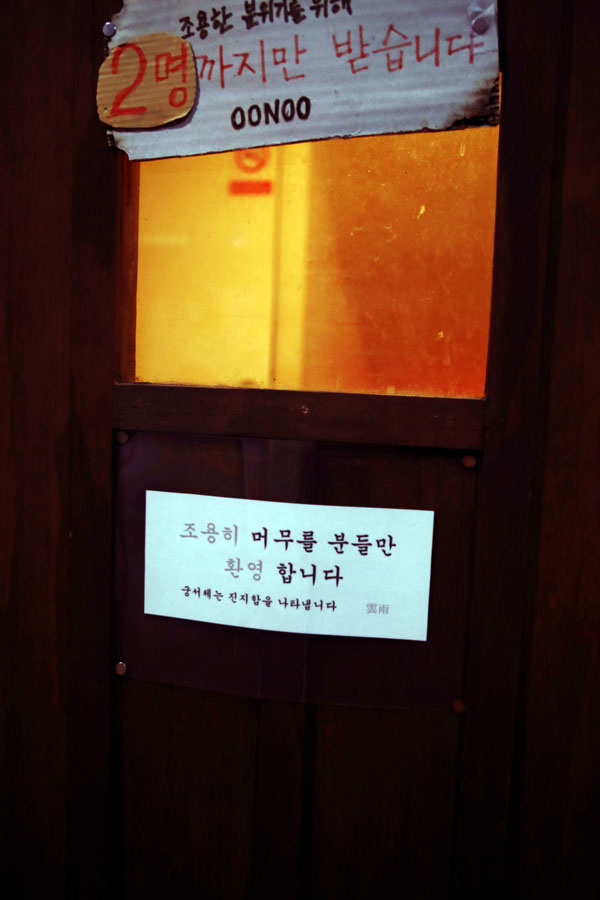 조용한 분위기를 위해
2명까지만 받습니다
OONOO
조용히 머무를 분들만
환영 합니다
궁서체는 진지함을 나타냅니다 雲雨